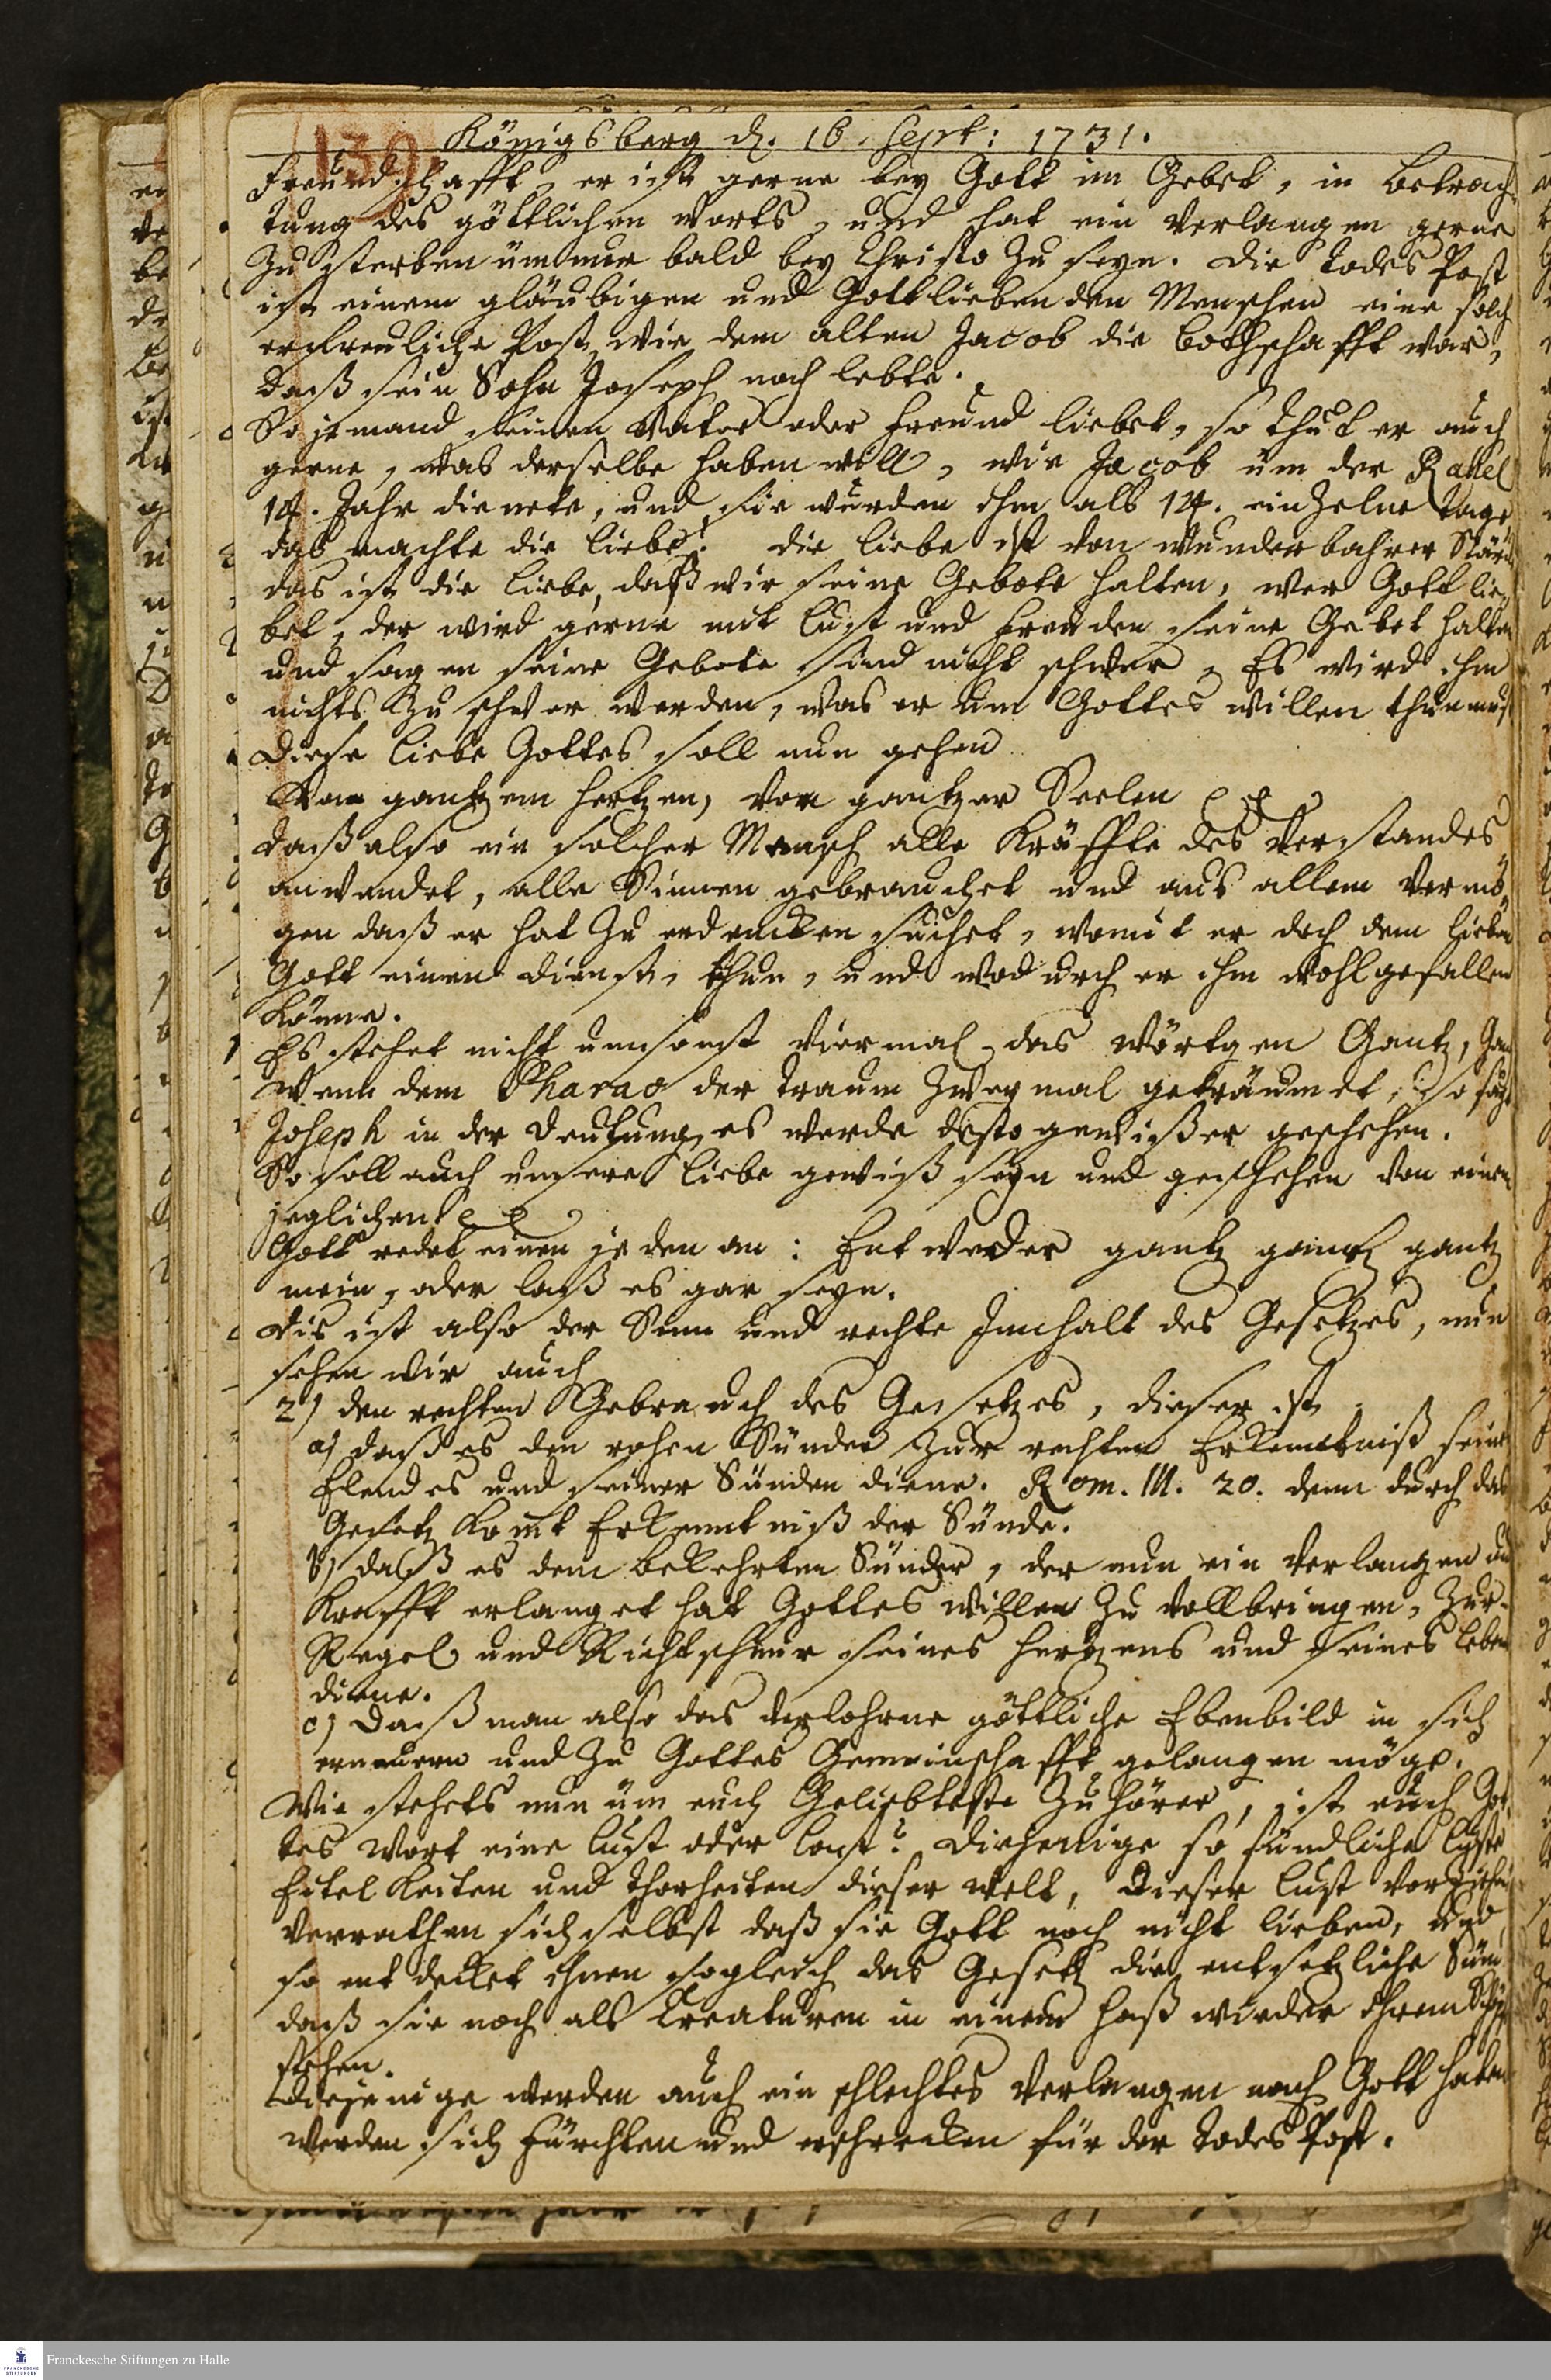 139.
Königsberg d. 16. Sept: 1731.
Freundschafft, er ist gerne bey Gott im Gebet, in betrach-
tung des göttlichen Worts, und hat ein Verlangen gerne
zu sterben üm nur bald bey Christo zu seyn. Die Todes Post
ist einem gläubigen und Gottliebenden Menschen eine solch
erfreuliche Post, wie dem alten Jacob die bothschafft war,
daß sein Sohn Joseph noch lebte.
So jemand seinen Vater oder Freund liebet, so thut er auch
gerne, was derselbe haben will, wie Jacob üm der Rahel
14. Jahr dienete, und sie wurden ihm als 14. einzelne Tage,
das machte die liebe! die liebe ist von wunderbahrer Stärck
das ist die liebe, daß wir seine Gebote halten, wer Gott lie-
bet, der wird gerne mit lust und Freuden seine Gebot halten
und sagen seine Gebote sind nicht schwer, Es wird ihm
nichts zu schwer werden, was er um Gottes willen thun muß
Diese liebe Gottes soll nun gehen
Von gantzem Hertzen, von gantzer Seelen
daß also ein solcher Mensch alle Kräffte des Verstandes
anwendet, alle Sinnen gebrauchet und aus allem Vermö-
gen daß er hat zu erdencken suchet, womit er doch dem lieben
Gott einen Dienst thun, und wodurch er ihm wohlgefallen
könne.
Es stehet nicht umsonst viermal das Wörtgen Gantz,
Wenn dem Pharao der Traum zweymal geträumet, so sagt
Joseph in der Deutung, es werde desto gewißer geschehen.
So soll auch unsere liebe gewiß seyn und geschehen von einem
jeglichen
Gott redet einen jeden an: Entweder gantz gantz gantz
mein, oder laß es gar seyn.
Dis ist also der Sum und rechte Innhalt des Gesetzes, nun
sehen wir auch
2) den rechten Gebrauch des Gesetzes, dieser ist
a) daß es den rohen Sünder zur rechten Erkenntniß seines
Elendes und seiner Sünden diene. Rom. III. 20. denn durch das
Gesetz komt Erkenntniß der Sünde.
b) daß es dem bekehrten Sünder, der nun ein Verlangen und
Krafft erlanget hat Gottes Willen zu vollbringen, zur
Regel und Richtschnur seines Hertzens und seines lebens
diene.
c) Daß man also das verlohrne göttliche Ebenbild in sich
erneuern und zu Gottes Gemeinschafft gelangen möge.
Wie stehets nun üm euch Geliebteste Zuhörer, ist euch Got-
tes Wort eine lust oder last? Diejenige so sündliche lüste
Eitelkeiten und Thorheiten dieser Welt, dieser lust vorziehen
verrathen sich selbst daß sie Gott noch nicht lieben, und
so entdecket ihnen sogleich das Gesetz die entsetzliche Sünd
daß sie noch als Creaturen in einem Haß wieder ihren Schöpf
stehen.
Diejenige werden auch ein schlechtes Verlangen nach Gott haben
werden sich fürchten und erschrecken für der Todes Post.
Franckesche Stiftungen zu Halle